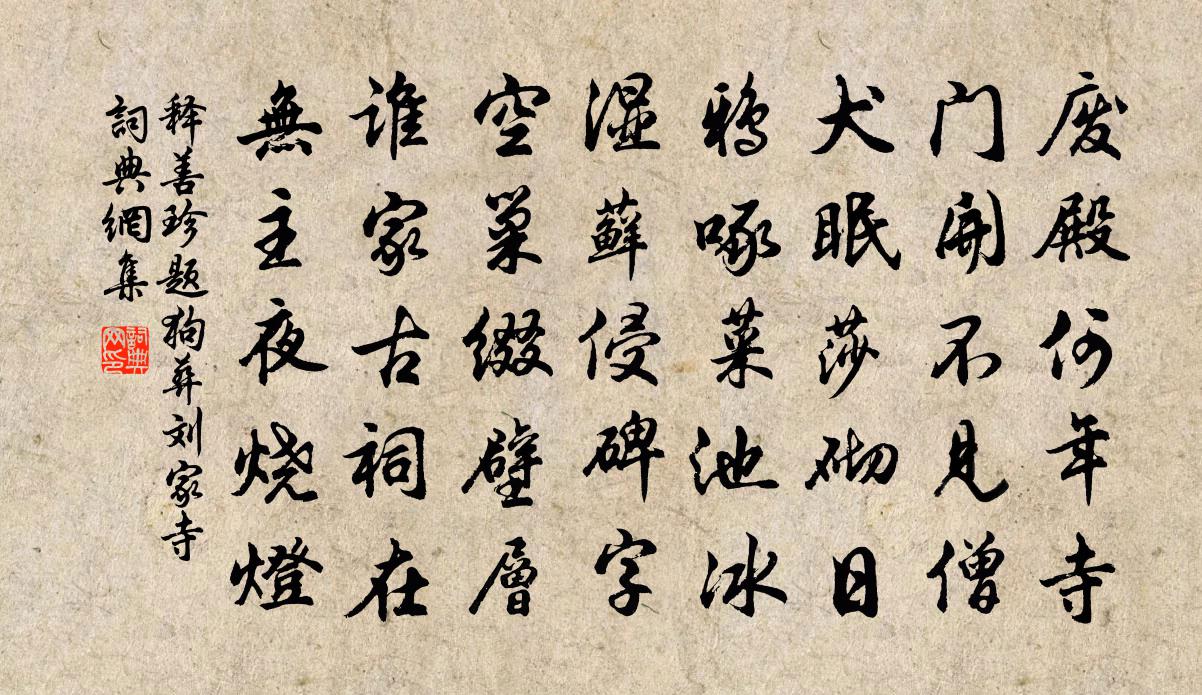 废殿何年寺
门開不见僧
犬眠莎砌日
鴉啄菜池冰
湿藓侵碑字
空巢缀壁層
谁家古祠在
無主夜烧燈
释善珍题狗葬刘家寺
詞典網集
詞典
网印